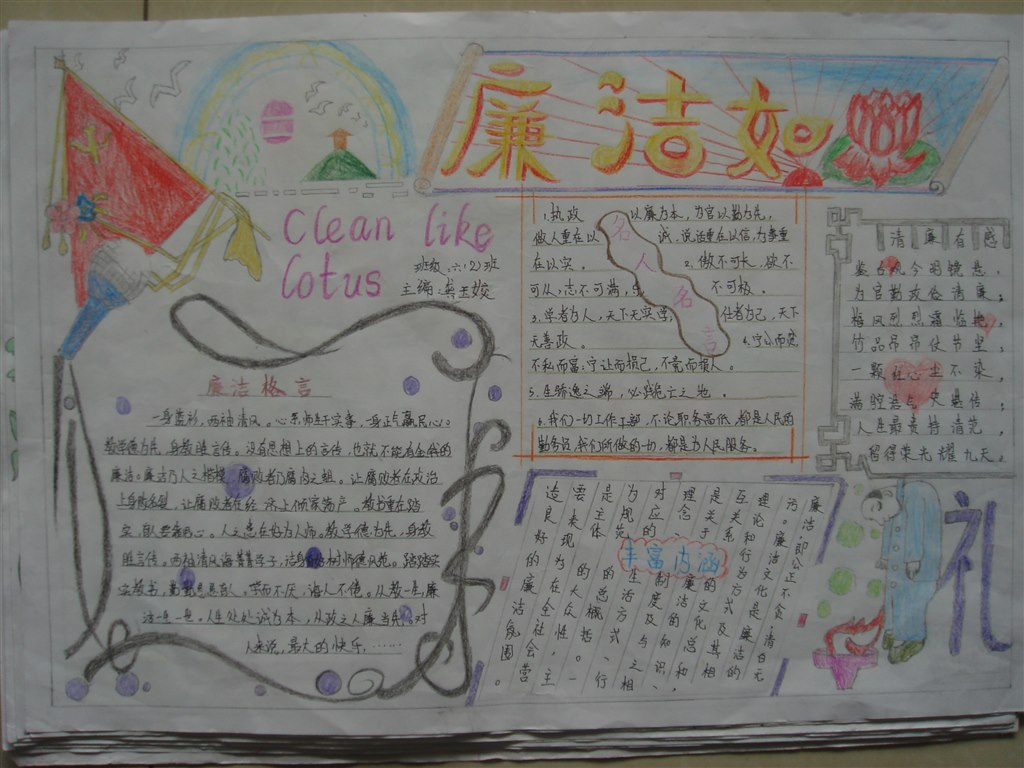 廉洁如
Clean like
lotus
班级:六(2)班
主编:龚玉姣
廉洁格言
一身蓝衫,两袖清风。心系师生干实事,身正赢民心。
教学德为先,身教胜言传。没有思想上的言传,也就不能有金钱的
廉洁。廉洁乃人之楷模,腐败者乃腐肉之蛆。让腐败者在政治
上身败名裂,让腐败者在经济上倾家荡产。教书重在踏
实,职要善用心。人之患在好为人师。教学德为先,身教
胜言传。两袖清风海菁菁学子,洁身自好树师德风范。踏踏实
实教书,勤勤恳恳育人。学而不厌,诲人不倦。从教一生,廉
洁一生一世。人生处处诚为本,从政之人廉当先。对
人来说,最大的快乐,……
名人名言
1.执政以廉为本,为官以勤为先,
做人重在以诚,说话重在以信,办事重
在以实。2.傲不可长,欲不
可从,志不可满,乐不可极。
3.学者为人,天下无实学;仕者为己,天下
无善政。4.宁公而贫
不私而富;宁让而损己,不竞而损人。
5.生骄逸之端,必践危亡之地。
6.我们一切工作干部,不论职务高低,都是人民的
勤务员,我们所做的一切,都是为人民服务。
清廉有感
鉴古观今明镜悬,
为官勤政俭清廉;
梅风烈烈霜临艳,
竹品昂昂伏节坚;
一颗红心尘不染,
满腔浩气史墓传;
人生最贵持清范,
留得荣光耀九天。
丰富内涵
廉洁,即公正不贪,清白无
污。廉洁文化是廉洁的
理论和行为方式及其相
互关系的文化总和,
是关于廉洁的知识、
理念、制度及与之相
对应的生活方式、行
为规范的总概括。一
是主体为大众性。
二是表现为在全社会营
造良好的廉洁氛围
礼